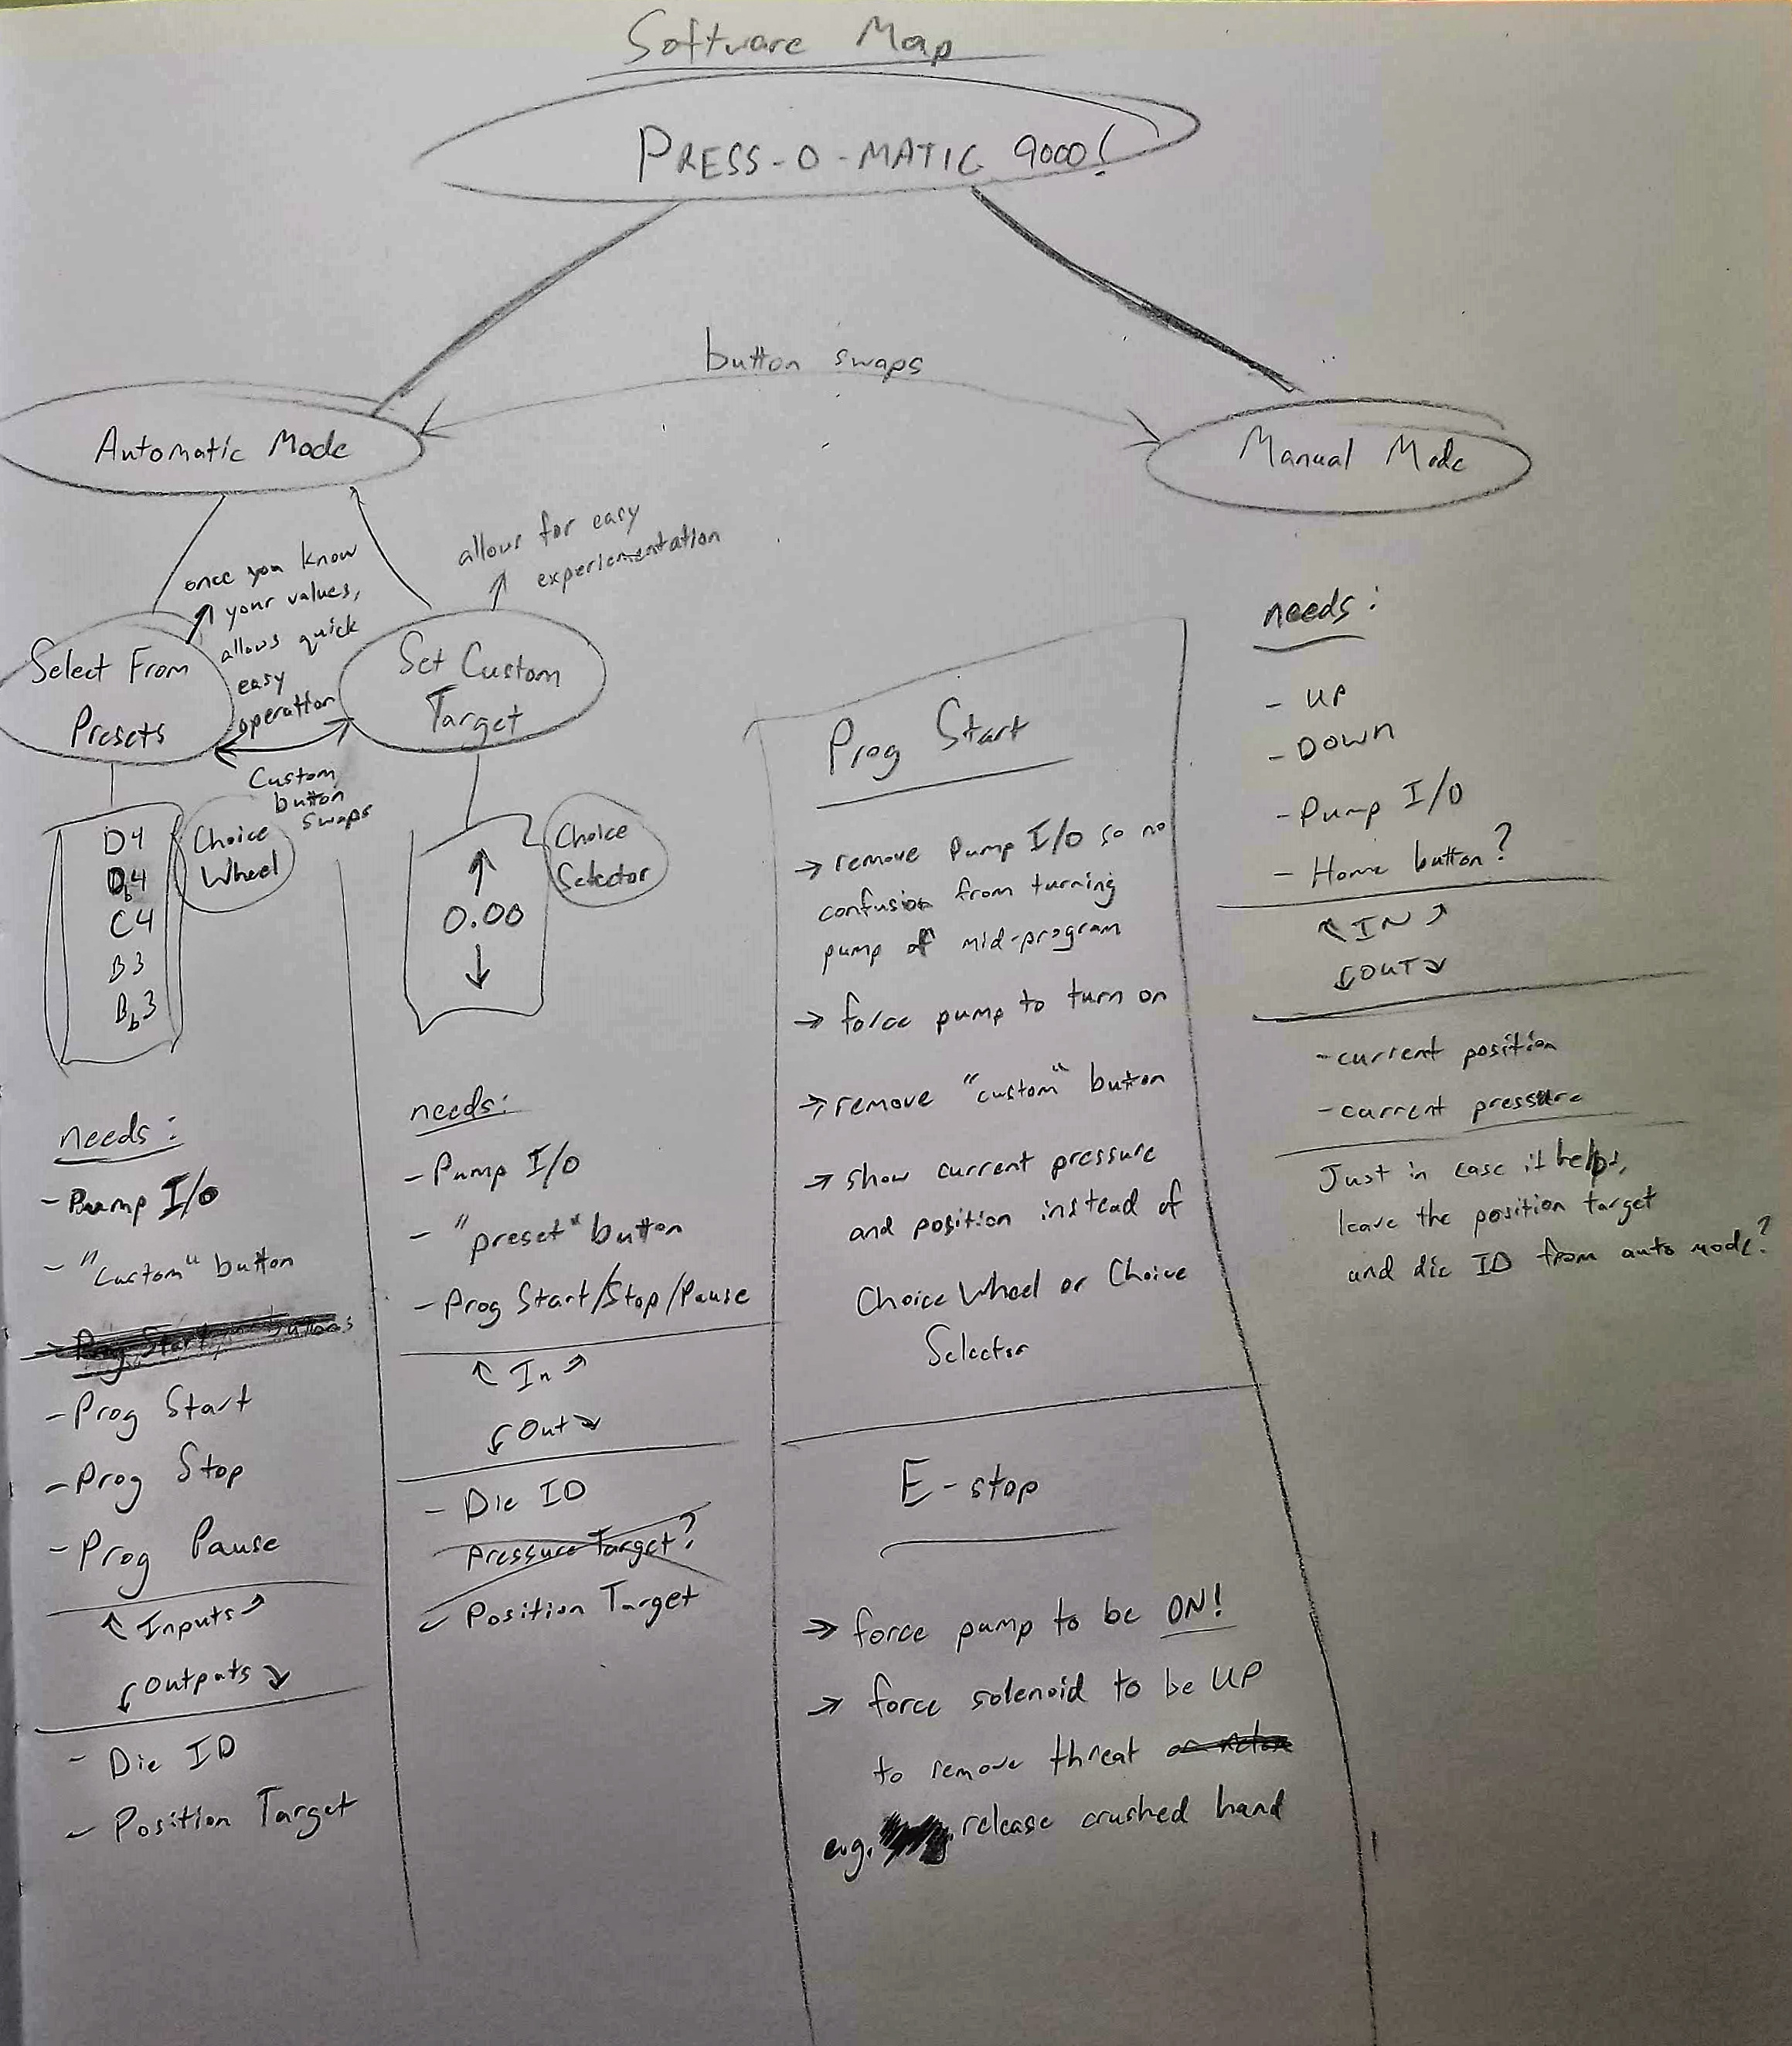 Software Map
PRESS-O-MATIC 9000!
button swaps
Automatic Mode
Manual Mode
once you know
your values,
allows quick
easy
operation
allows for easy
experiementation
Select From
Presets
Set Custom
Target
Custom
button
swaps
D4
Db4
C4
B3
Bb3
Choice
Wheel
↑
0.00
↓
Choice
Selector
needs:
- Pump I/O
- "Custom" button
- Prog Start
- Prog Stop
- Prog Pause
↑ Inputs ↗
↓ Outputs ↘
- Die ID
- Position Target
needs:
- Pump I/O
- "preset" button
- Prog Start/Stop/Pause
↑ In ↗
↓ Out ↘
- Die ID
Pressure Target?
- Position Target
Prog Start
→ remove Pump I/O so no
confusion from turning
pump of mid-program
→ force pump to turn on
→ remove "custom" button
→ show current pressure
and position instead of
Choice Wheel or Choice
Selector
E-stop
→ force pump to be ON!
→ force solenoid to be UP
to remove threat
e.g. release crushed hand
needs:
- UP
- DOWN
- Pump I/O
- Home button?
↑ IN ↗
↓ OUT ↘
- current position
- current pressure
Just in case it helps,
leave the position target
and die ID from auto mode?